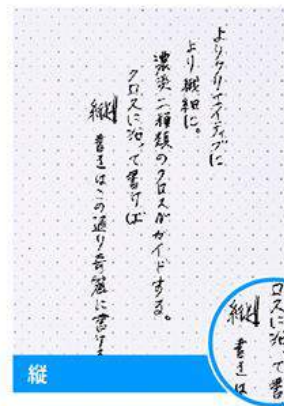 よりクリエイティブに
より繊細に。
濃淡二種類のクロスがガイドする。
クロスに沿って書けば
縦書きはこの通り奇麗に書ける
縦
ロスに沿って書
縦書きは